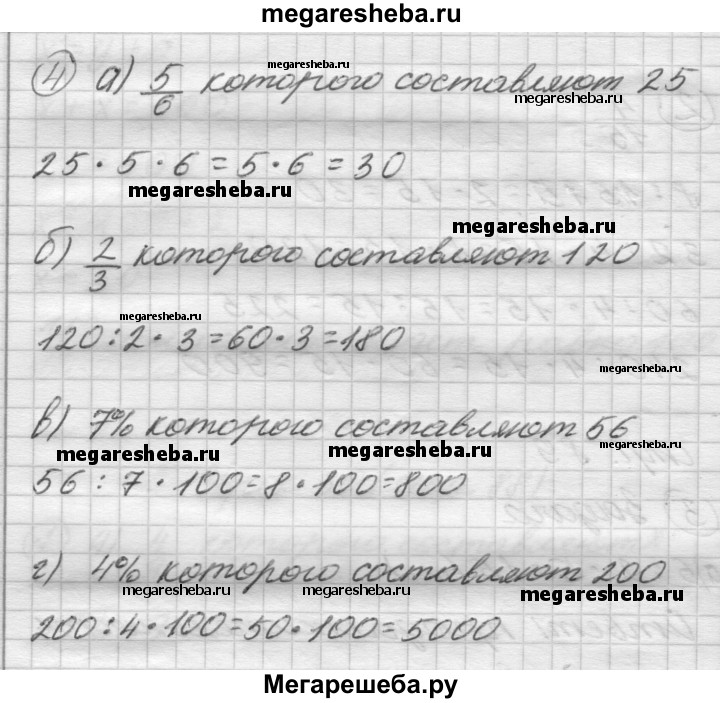 megaresheba.ru
megaresheba.ru
④ а) 5/6 которого составляют 25
megaresheba.ru
25 · 5 · 6 = 5 · 6 = 30
megaresheba.ru
megaresheba.ru
б) 2/3 которого составляют 120
megaresheba.ru
120 : 2 · 3 = 60 · 3 = 180
megaresheba.ru
в) 7% которого составляют 56
megaresheba.ru megaresheba.ru megaresheba.ru
56 : 7 · 100 = 8 · 100 = 800
г) 4% которого составляют 200
megaresheba.ru megaresheba.ru megaresheba.ru
200 : 4 · 100 = 50 · 100 = 5000
Мегарешеба.ру